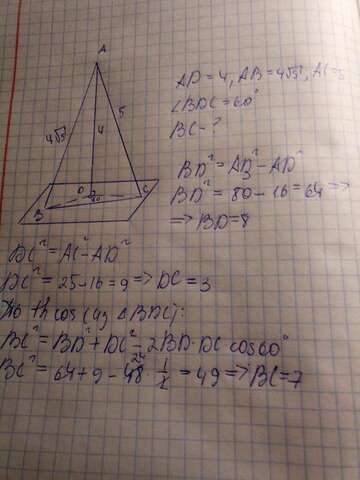 A
AD = 4, AB = 4√5, AC = 5
∠BDC = 60°
BC - ?
4√5
4
5
D
60
B
C
BD² = AB² - AD²
BD² = 80 - 16 = 64 =>
=> BD = 8
DC² = AC² - AD²
DC² = 25 - 16 = 9 => DC = 3
По th cos (из △BDC):
BC² = BD² + DC² - 2BD · DC cos60°
24
BC² = 64 + 9 - 48 · 1/2 = 49 => BC = 7